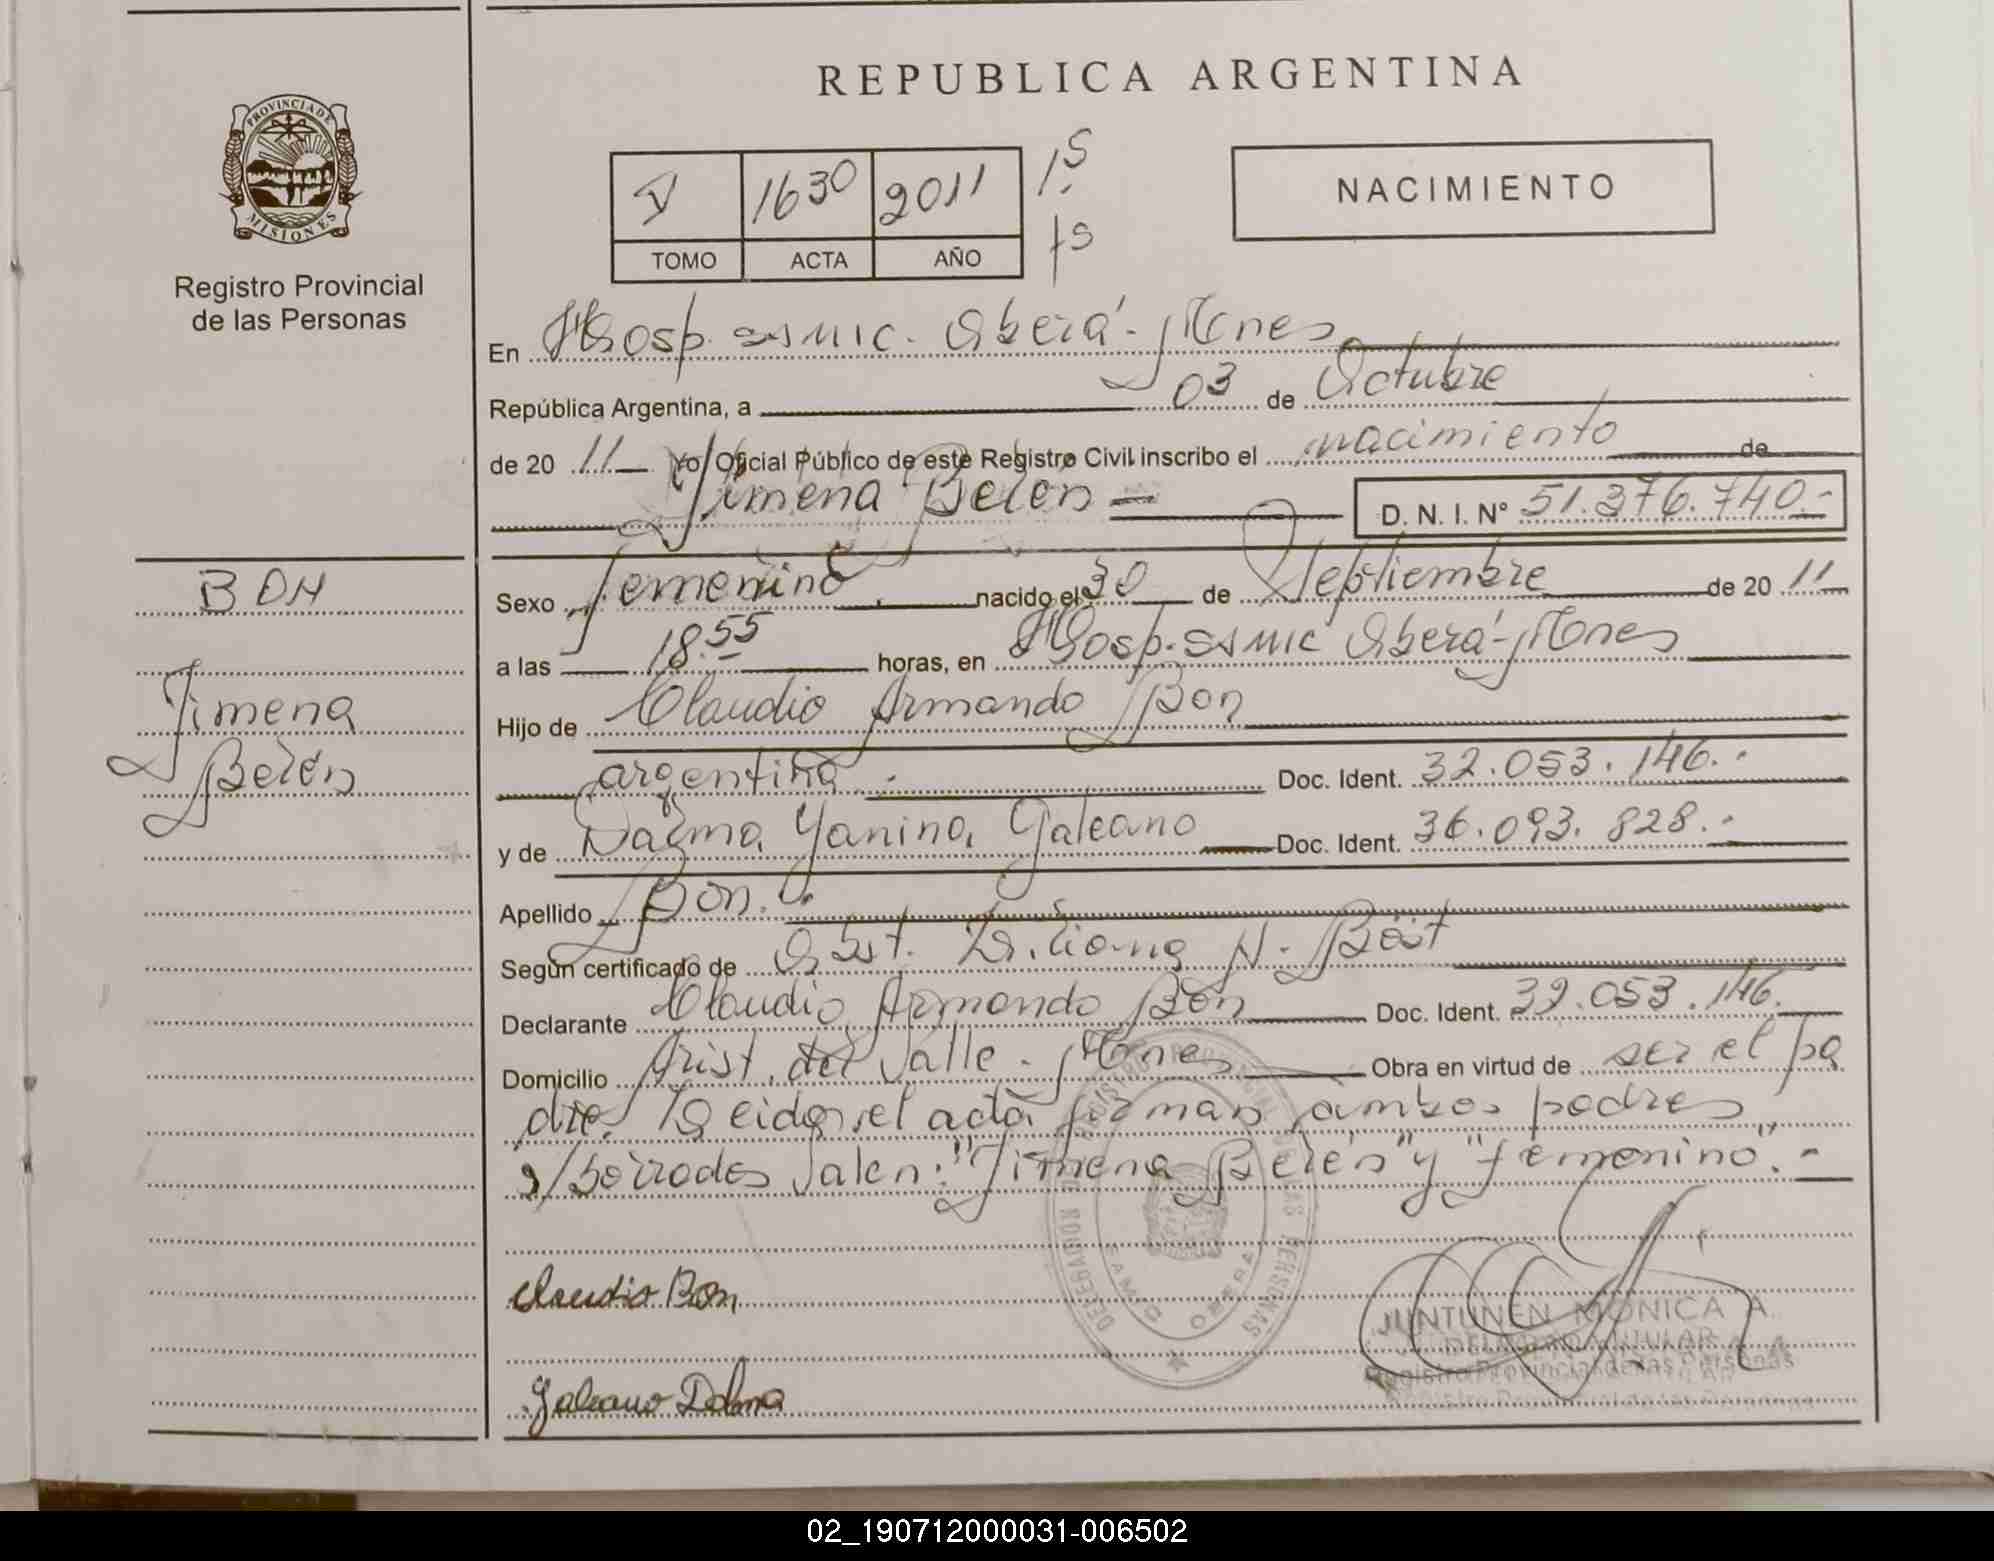 REPUBLICA ARGENTINA
PROVINCIA DE MISIONES
Registro Provincial
de las Personas
V 1630 2011
TOMO ACTA AÑO
NACIMIENTO
En Hosp. SAMIC. Oberá - Mnes
República Argentina, a 03 de Octubre
de 20 11 Yo Oficial Público de este Registro Civil inscribo el nacimiento de
Jimena Belén D. N. I. N° 51.376.740.-
BON
Jimena
Belén
Sexo femenino nacido el 30 de Septiembre de 20 11
a las 18.55 horas, en Hosp. SAMIC Oberá - Mnes
Hijo de Claudio Armando Bon
argentina Doc. Ident. 32.053.146.-
y de Dalma Yanina Galeano Doc. Ident. 36.093.828.-
Apellido Bon.
Según certificado de Obst. Liliana N.
Declarante Claudio Armando Bon Doc. Ident. 32.053.146.
Domicilio Arist. del Valle - Mnes Obra en virtud de ser el pa
dre. Leida el acta firman ambos padres
s/borrados valen: "Jimena Belén" y "femenino".-
Claudio Bon
Galeano Dalma
REGISTRO PROVINCIAL DE LAS PERSONAS
DELEGACION
SAMIC OBERA
JUNTUNEN MONICA A.
Registro Provincial de las Personas
02_190712000031-006502